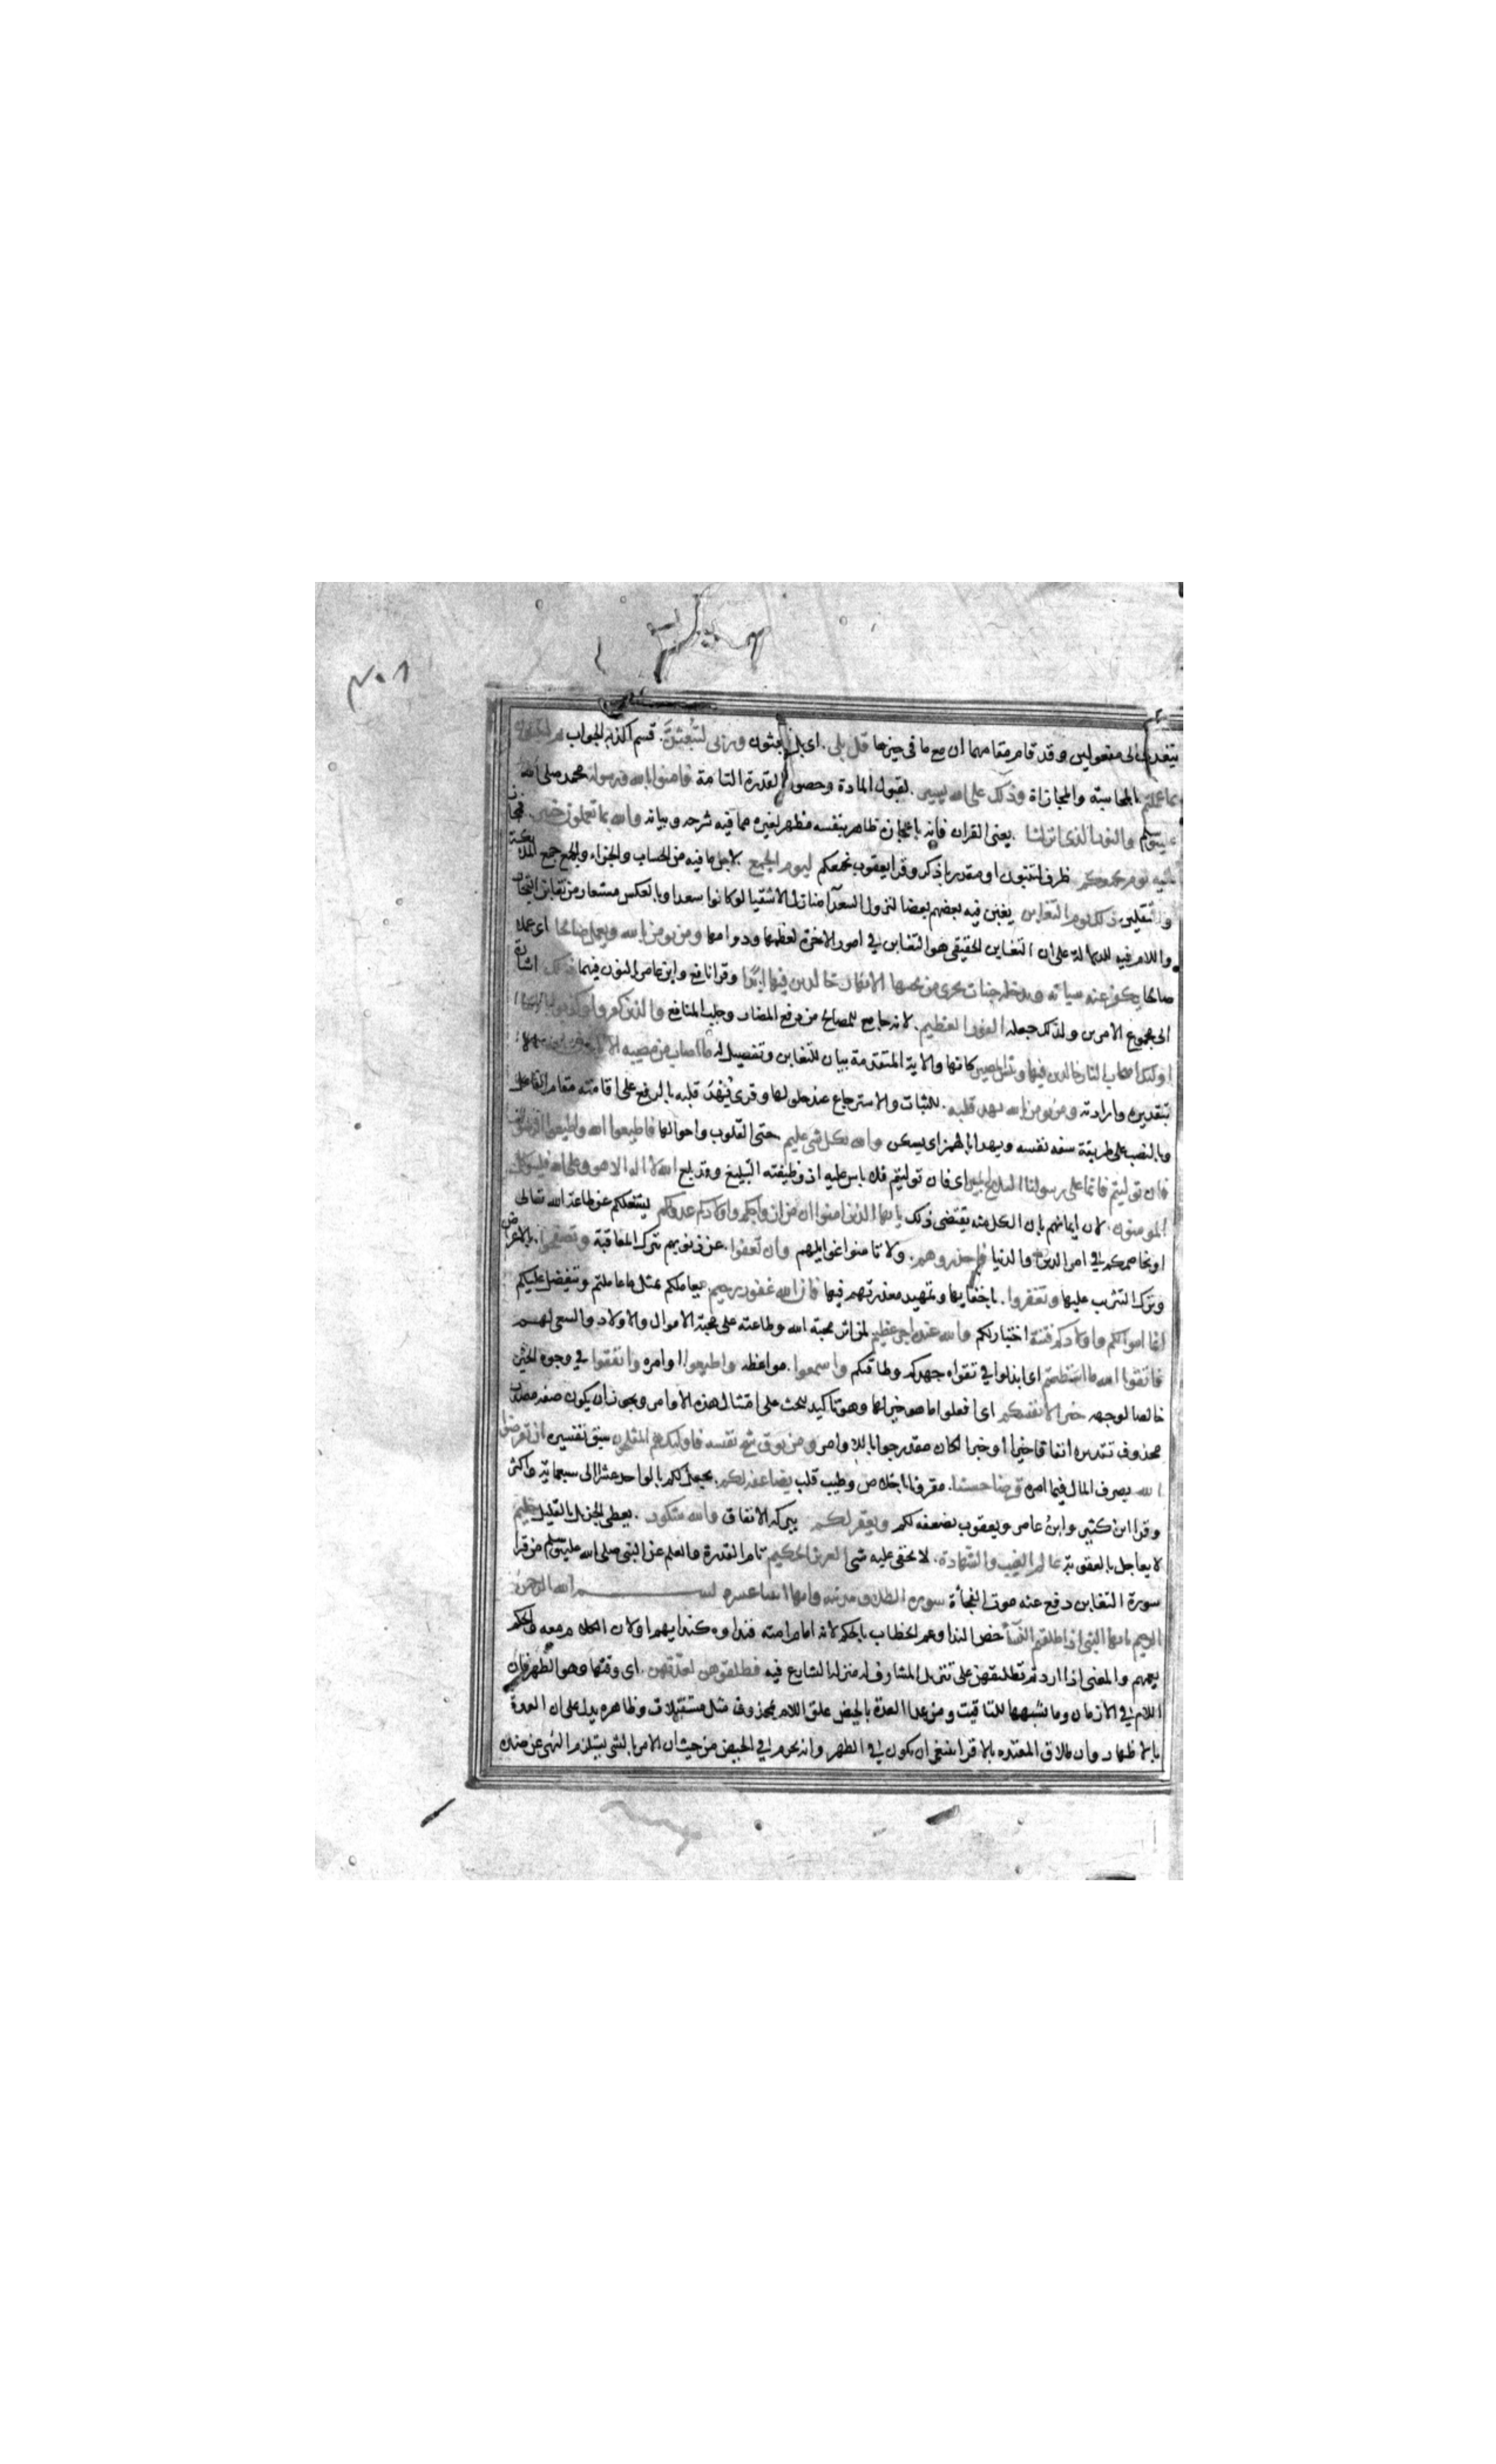 يتعدى الى مفعولين وقد قام مقامهما ان مع ما فى حيزها قل بلى . اى بلى تبعثون وربى لتبعثن . قسم اكد به الجواب ثم لتنبؤن
بما عملتم بالمحاسبة والمجازاة وذلك على الله يسير . لقبول المادة وحصول القدرة التامة فامنوا بالله ورسوله محمد صلى الله
عليه وسلم والنور الذى انزلنا يعنى القران فانه باعجازه ظاهر بنفسه مظهر لغيره مما فيه شرحه وبيانه والله بما تعملون خبير . فمجاز
عليه يوم يجمعكم ظرف لتنبؤن او مقدر باذكر وقرا يعقوب نجمعكم ليوم الجمع لاجل ما فيه من الحساب والجزاء والجمع جمع الملائكة
والثقلين ذلك يوم التغابن يغبن فيه بعضهم بعضا لنزول السعدآ منازل الاشقيا لو كانوا سعدا وبالعكس مستعار من تغابن التجار
واللام فيه للدلالة على ان التغابن الحقيقى هو التغابن فى امور الاخرة لعظمها ودوامها ومن يومن بالله ويعمل صالحا اى عملا
صالحا يكفر عنه سياته ويدخله جنات تجرى من تحتها الانهار خالدين فيها ابدا وقرا نافع وابن عامر بالنون فيهما ذلك اشارة
الى مجموع الامرين ولذلك جعله الفوز العظيم . لانه جامع للمصالح من دفع المضار وجلب المنافع والذين كفروا وكذبوا باياتنا
اولئك اصحاب النار خالدين فيها وبئس المصير كانها والاية المتقدمة بيان للتغابن وتفصيل له ما اصاب من مصيبة الا باذن الله الا
بتقديره وارادته ومن يومن بالله يهد قلبه . للثبات والاسترجاع عند حلولها وقرى يهد قلبه بالرفع على اقامته مقام الفاعل
وبالنصب على طريقة سفه نفسه ويهدا بالهمز اى يسكن والله بكل شى عليم حتى القلوب واحوالها فاطيعوا الله واطيعوا الرسول
فان توليتم فانما على رسولنا البلاغ المبين اى فان توليتم فلا باس عليه اذ وظيفته التبليغ وقد بلغ الله لا اله الا هو وعلى الله فليتوكل
المومنون . لان ايمانهم بان الكل منه يقتضى ذلك يا ايها الذين امنوا ان من ازواجكم واولادكم عدوا لكم ليشغلكم عن طاعة الله تعالى
او يخاصمكم فى امر الدين والدنيا فاحذروهم . ولا تامنوا غوايلهم وان تعفوا . عن ذنوبهم بترك المعاقبة وتصفحوا . بالاعراض
وترك التثريب عليها وتغفروا . باخفايها وتمهيد معذرتهم فيها فان الله غفور رحيم يعاملكم بمثل ما عاملتم ويتفضل عليكم
انما اموالكم واولادكم فتنة اختبار لكم والله عنده اجر عظيم لمن اثر محبة الله وطاعته على محبة الاموال والاولاد والسعى لهم
فاتقوا الله ما استطعتم اى ابذلوا فى تقواه جهدكم وطاقتكم واسمعوا . مواعظه واطيعوا اوامره وانفقوا فى وجوه الخير
خالصا لوجهه خيرا لانفسكم اى افعلوا ما هو خير لها وهو تاكيد للحث على امتثال هذه الاوامر ويجوز ان يكون صفة مصدر
محذوف تقديره انفاقا خيرا او خبرا لكان مقدر جوابا للاوامر ومن يوق شح نفسه فاولئك هم المفلحون سبق تفسيره ان تقرضوا
الله بصرف المال فيما امره قرضا حسنا . مقرونا باخلاص وطيب قلب يضاعفه لكم . يجعل لكم بالواحد عشرا الى سبعماية واكثر
وقرا ابن كثير وابن عامر ويعقوب يضعفه لكم ويغفر لكم ببركة الانفاق والله شكور . يعطى الجزيل بالقليل حليم
لا يعاجل بالعقوبة عالم الغيب والشهادة . لا يخفى عليه شى العزيز الحكيم تام القدرة والعلم عن النبى صلى الله عليه وسلم من قرا
سورة التغابن دفع عنه موت الفجأة سورة الطلاق مدنية وايها اثنا عشرة بسم الله الرحمن
الرحيم يا ايها النبى اذا طلقتم النسآ خص الندا وعم الخطاب بالحكم لانه امام امته فنداوه كندايهم او لان الكلام معه والحكم
يعمهم والمعنى اذا اردتم تطليقهن على تنزيل المشارف له منزلة الشارع فيه فطلقوهن لعدتهن . اى وقتها وهو الطهر فان
اللام فى الازمان وما يشبهها للتاقيت ومن عد العدة بالحيض علق اللام بمحذوف مثل مستقبلات وظاهره يدل على ان العدة
بالاطهار وان طلاق المعتدة بالاقرا ينبغى ان يكون فى الطهر وانه يحرم فى الحيض من حيث ان الامر بالشى يستلزم النهى عن ضده